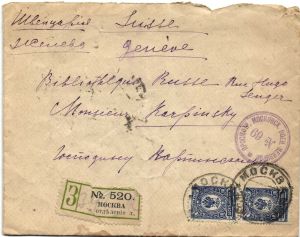 Швейцарія Suisse
Женева Genève
Bibliothèque Russe Rue Hugo
Senger
Monsieur Karpinsky
Господину Карпинскому
З
№ 520.
МОСКВА
отдѣленіе
МОСКВА
МОСКВА